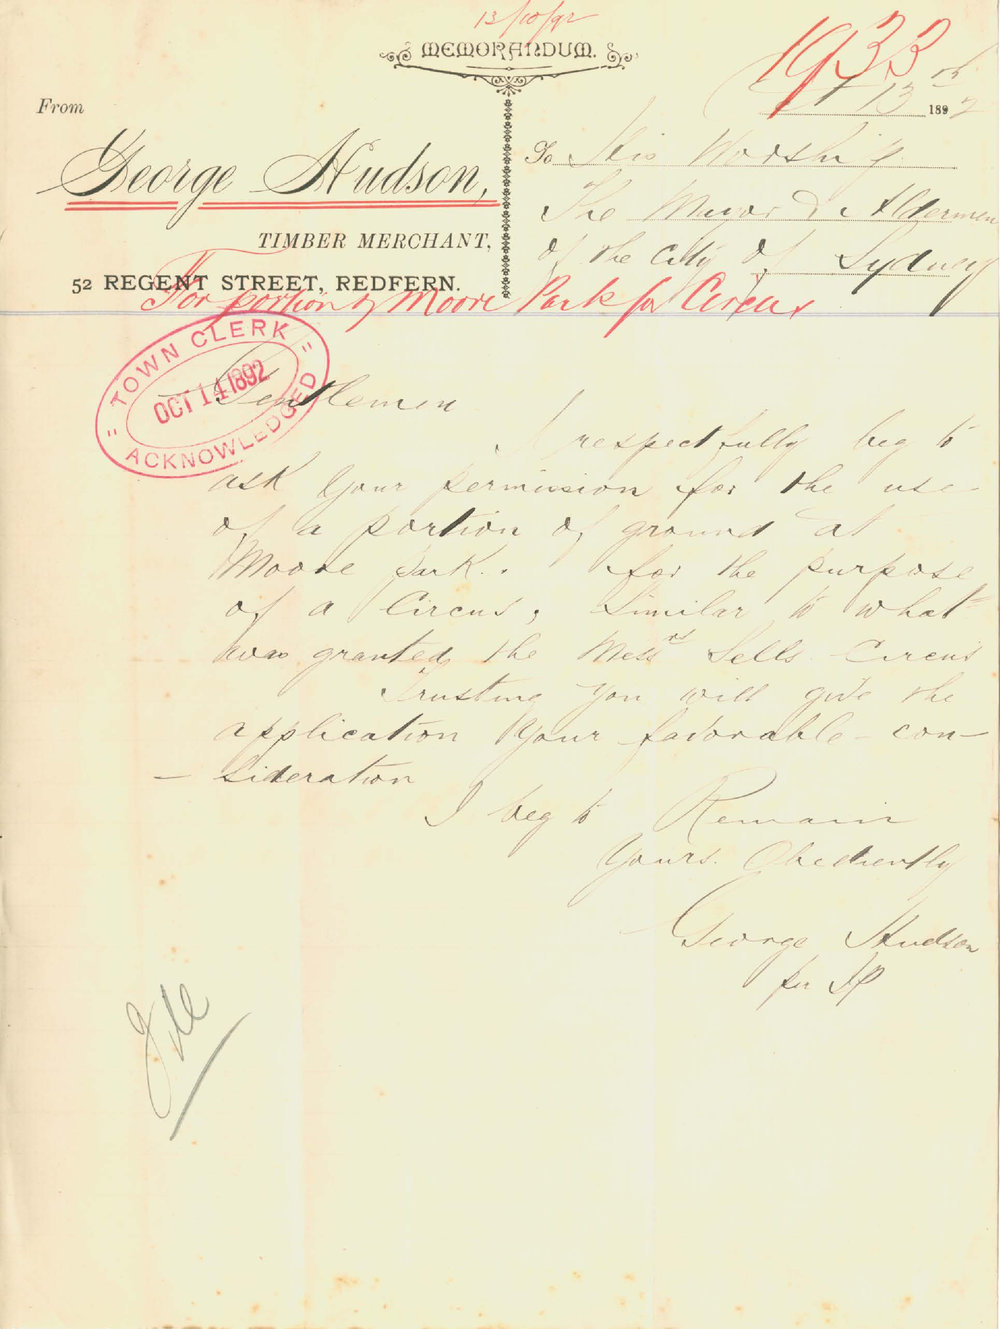 13/10/92
MEMORANDUM.
1933
Oct 13th 1892
From
George Hudson,
TIMBER MERCHANT,
52 REGENT STREET, REDFERN.
To His Worship
The Mayor & Aldermen
of the City of Sydney
For portion of Moore Park for Circus
TOWN CLERK
OCT 14 1892
ACKNOWLEDGED
Gentlemen
I respectfully beg to
ask your permission for the use
of a portion of ground at
Moore Park.. for the purpose
of a Circus, Similar to what
was granted the Messrs Sells Circus
Trusting you will give the
application your favorable con-
- sideration
I beg to Remain
Yours. Obediently
George Hudson
per
File